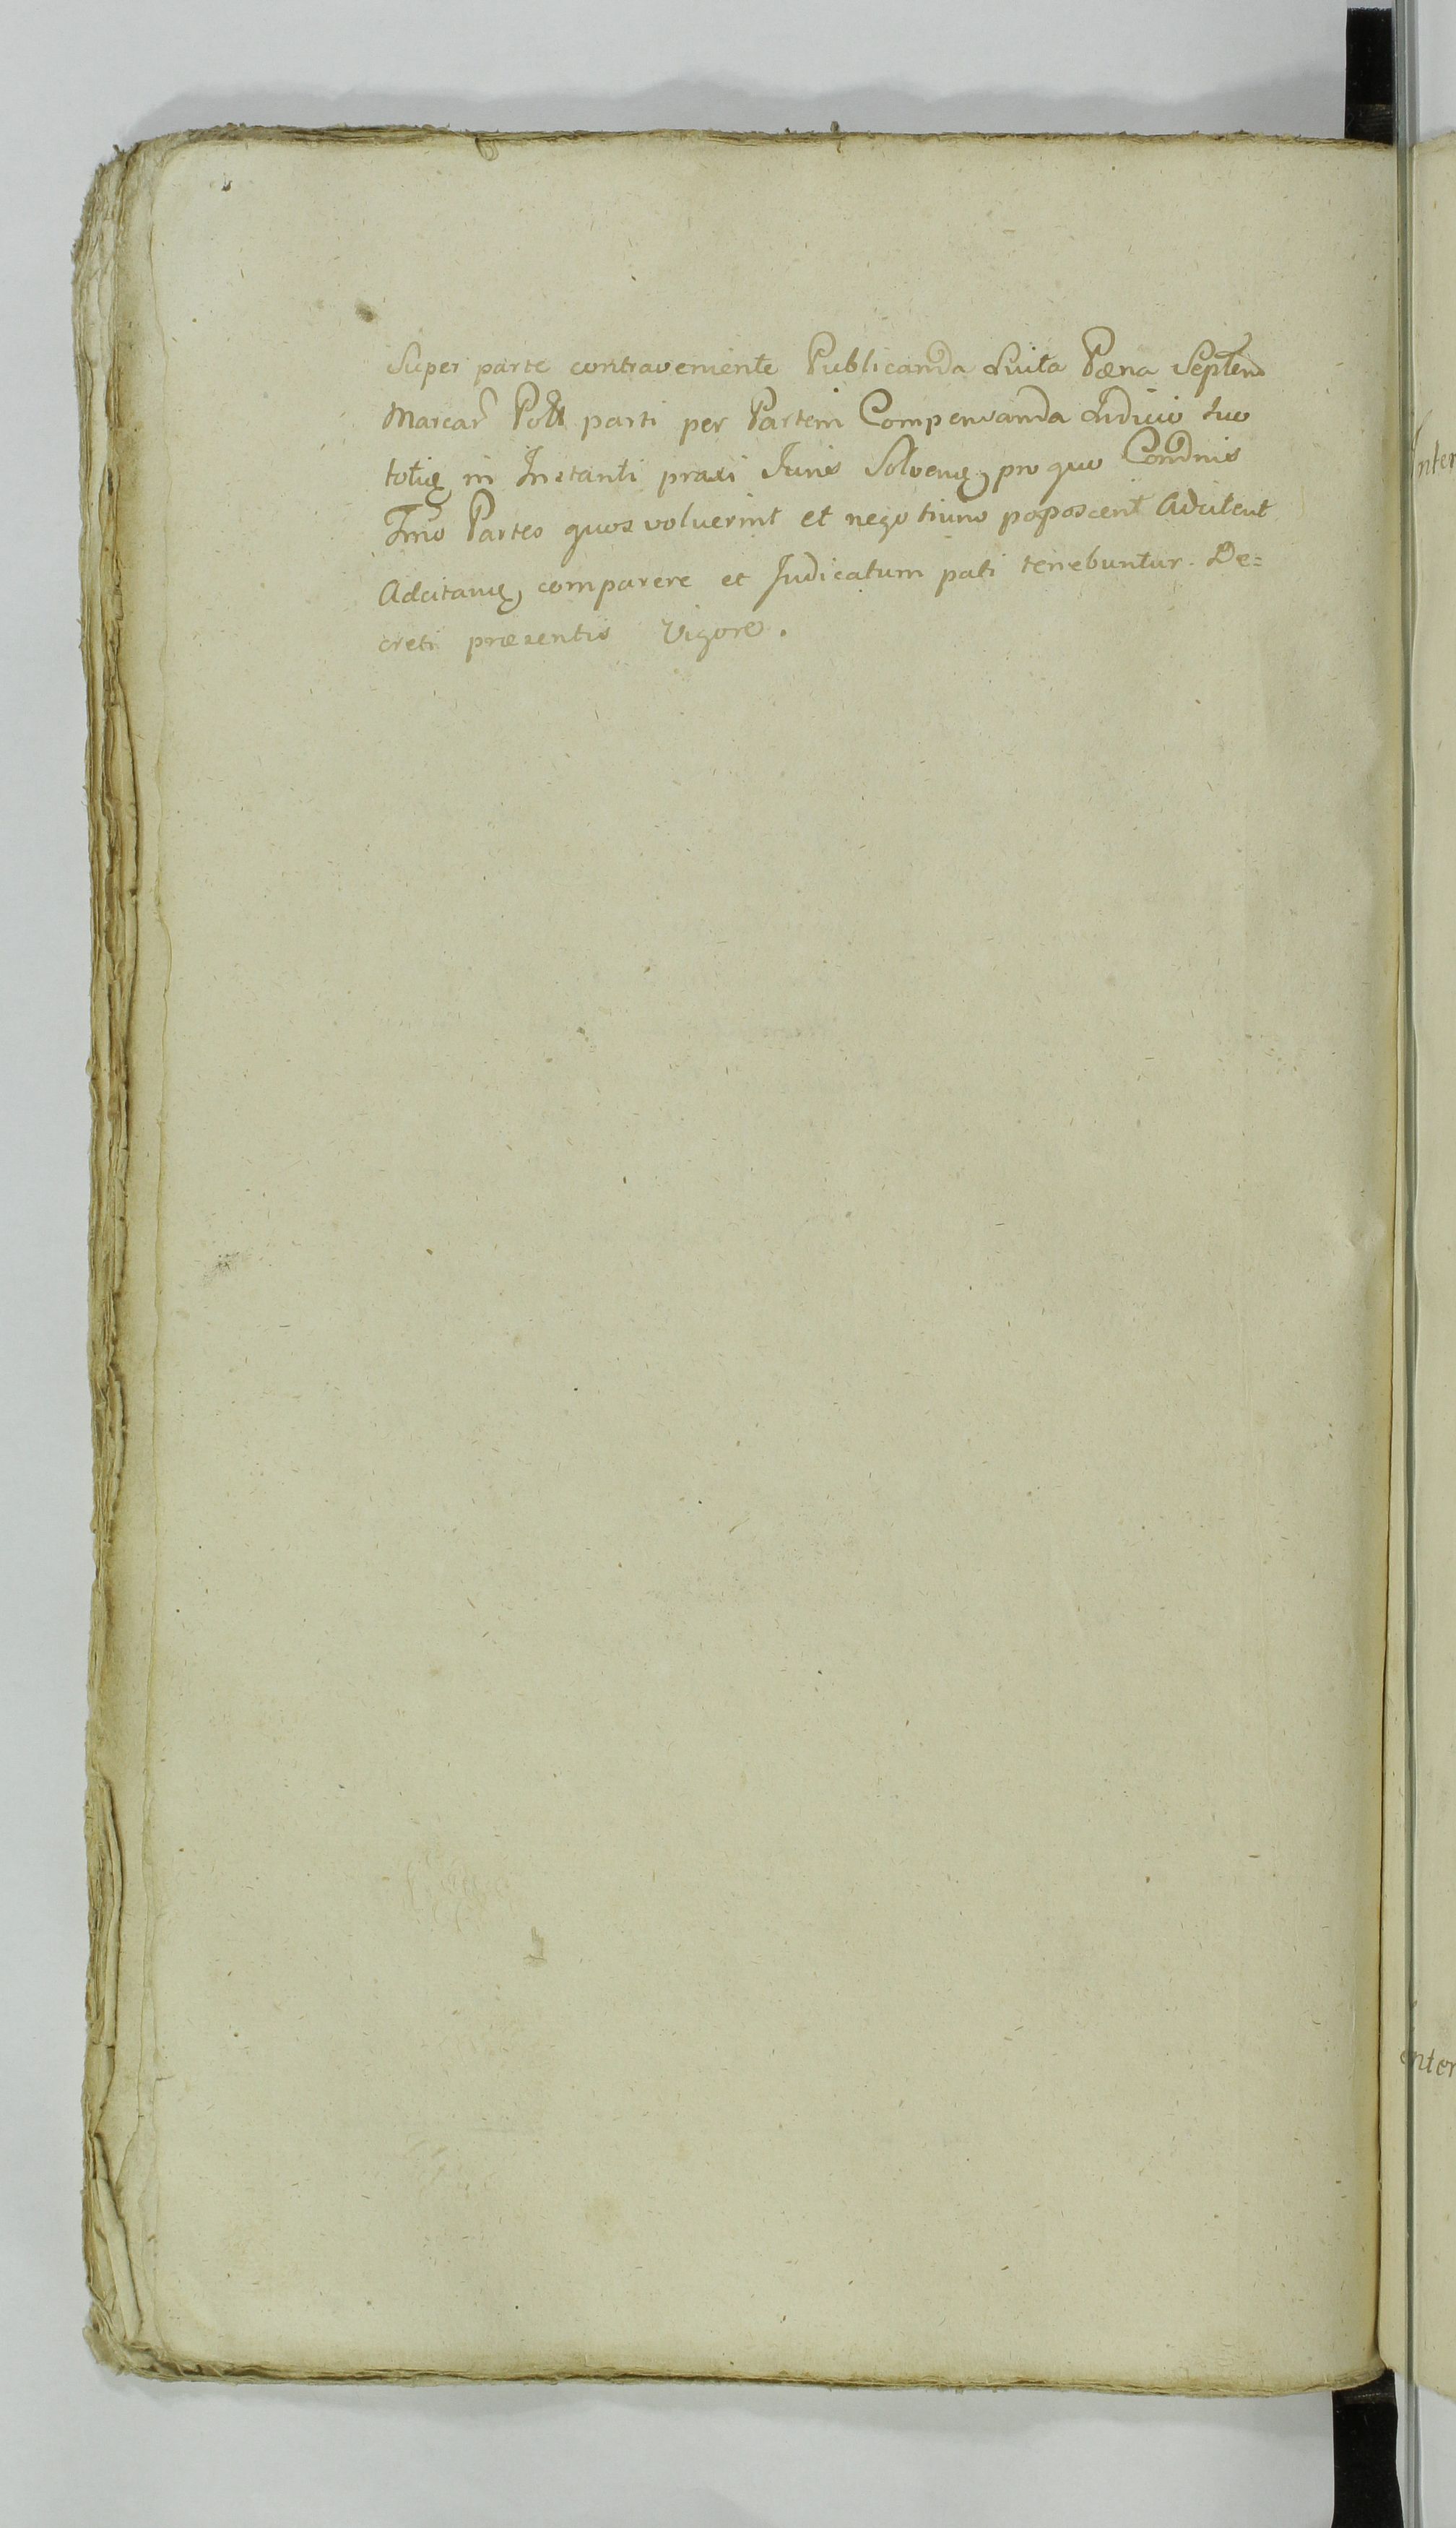 Super parte contraveniente Publicanda Luita Pœna Septem
Marcar Poll parti per Partem Compensanda Judicio suo
totiq in Instanti praxi Juris Solvenq, pro quo Condnis
Tmo Partes quos voluerint et negotium poposcerit Adcitent
Adcitanq, comparere et Judicatum pati tenebuntur. De=
creti præsentis Vigore.
Inter
enter